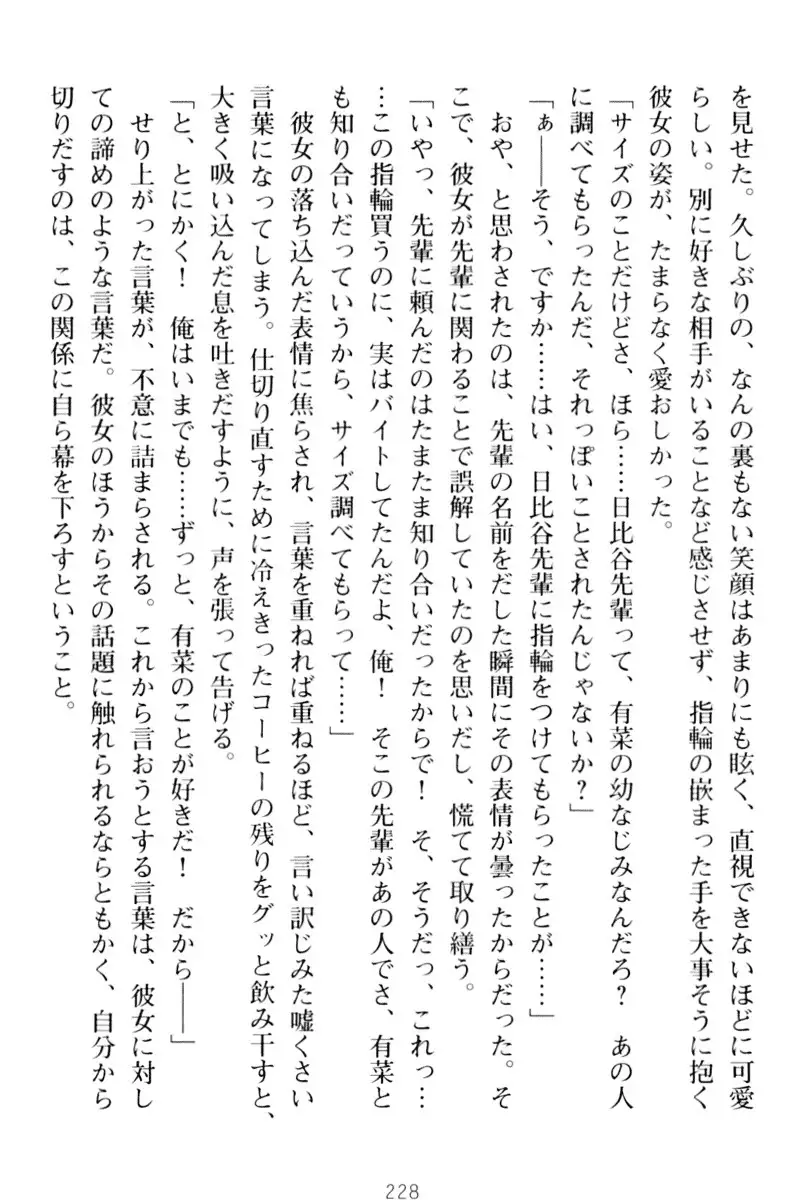 を見せた。久しぶりの、なんの裏もない笑顔はあまりにも眩く、直視できないほどに可愛
らしい。別に好きな相手がいることなど感じさせず、指輪の嵌まった手を大事そうに抱く
彼女の姿が、たまらなく愛おしかった。
「サイズのことだけどさ、ほら……日比谷先輩って、有菜の幼なじみなんだろ？　あの人
に調べてもらったんだ、それっぽいことされたんじゃないか？」
「ぁ――そう、ですか……はい、日比谷先輩に指輪をつけてもらったことが……」
おや、と思わされたのは、先輩の名前をだした瞬間にその表情が曇ったからだった。そ
こで、彼女が先輩に関わることで誤解していたのを思いだし、慌てて取り繕う。
「いやっ、先輩に頼んだのはたまたま知り合いだったからで！　そ、そうだっ、これっ…
…この指輪買うのに、実はバイトしてたんだよ、俺！　そこの先輩があの人でさ、有菜と
も知り合いだっていうから、サイズ調べてもらって……」
彼女の落ち込んだ表情に焦らされ、言葉を重ねれば重ねるほど、言い訳じみた嘘くさい
言葉になってしまう。仕切り直すために冷えきったコーヒーの残りをグッと飲み干すと、
大きく吸い込んだ息を吐きだすように、声を張って告げる。
「と、とにかく！　俺はいまでも……ずっと、有菜のことが好きだ！　だから――」
せり上がった言葉が、不意に詰まらされる。これから言おうとする言葉は、彼女に対し
ての諦めのような言葉だ。彼女のほうからその話題に触れられるならともかく、自分から
切りだすのは、この関係に自ら幕を下ろすということ。
228